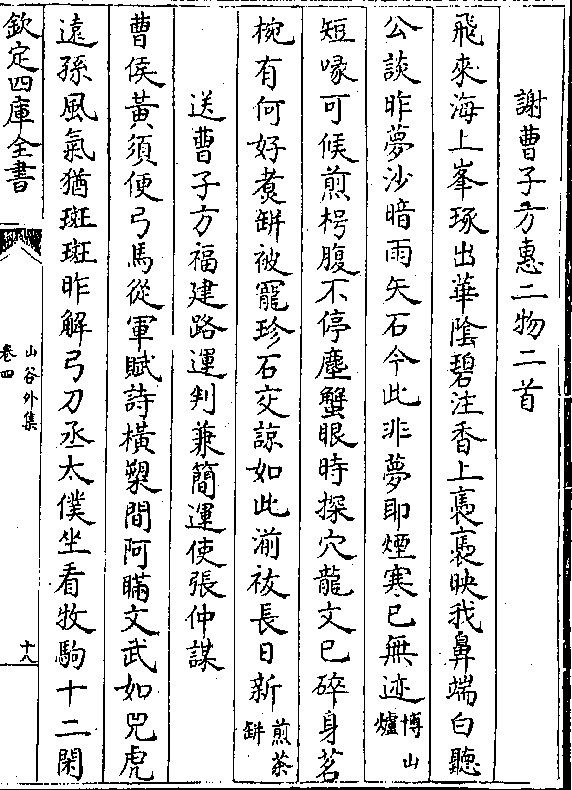 謝曹子方惠二物二首
飛來海上峯琢出華陰碧注香上褭褭映我鼻端白聽
公談昨夢沙暗雨矢石今此非夢耶煙寒已無迹博山爐
短喙可候煎枵腹不停塵蟹眼時探穴龍文已碎身茗
椀有何好煮缾被寵珍石交諒如此湔祓長日新煎茶缾
送曹子方福建路運判兼簡運使張仲謀
曹侯黃須便弓馬從軍賦詩橫槊間阿瞞文武如兕虎
遠孫風氣猶斑斑昨解弓刀丞太僕坐看牧駒十二閑
欽定四庫全書
山谷外集
卷四
十八